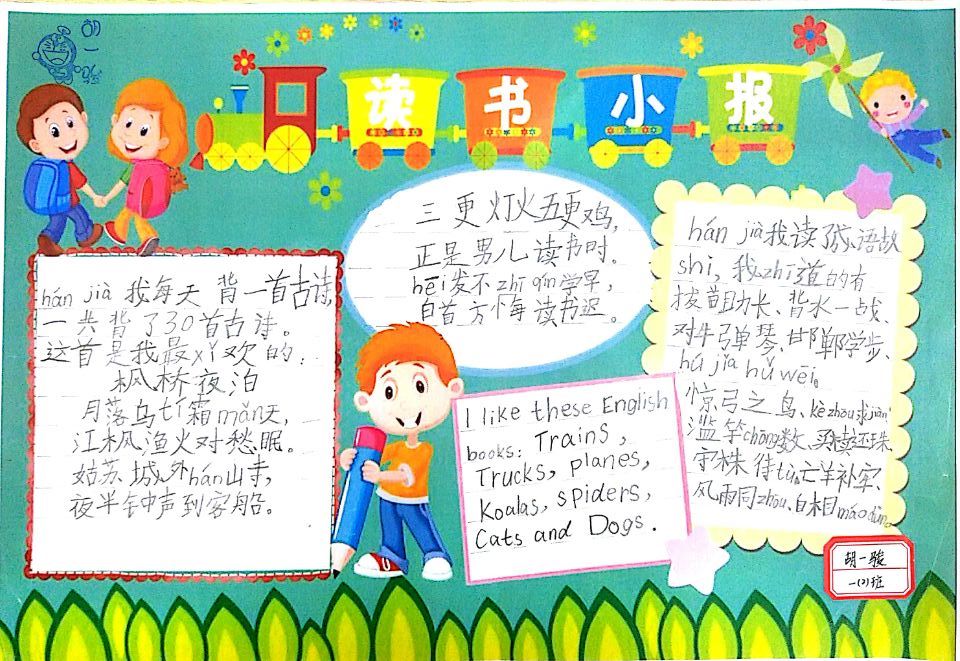 胡
一
骏
读 书 小 报
hán jià 我每天 背一首古诗,
一共背了30首古诗。
这首是我最xǐ欢的:
枫桥夜泊
月落乌tí霜mǎn天,
江枫渔火对愁眠。
姑苏城外hán山寺,
夜半钟声到客船。
三更灯火五更鸡,
正是男儿读书时。
hēi发不zhī qín学早,
白首方悔读书迟。
I like these English
books: Trains,
Trucks, planes,
Koalas, spiders,
Cats and Dogs.
hán jià我读了成语故
shi, 我zhī道的有
拔苗助长、背水一战、
对牛弹琴、邯郸学步、
hú jiǎ hǔ wēi。
惊弓之鸟、kè zhōu求jiàn
滥竽chōng数、买椟还珠
守株待tù。亡羊补牢、
风雨同zhōu、自相máo dùn。
胡一骏
一(2)班